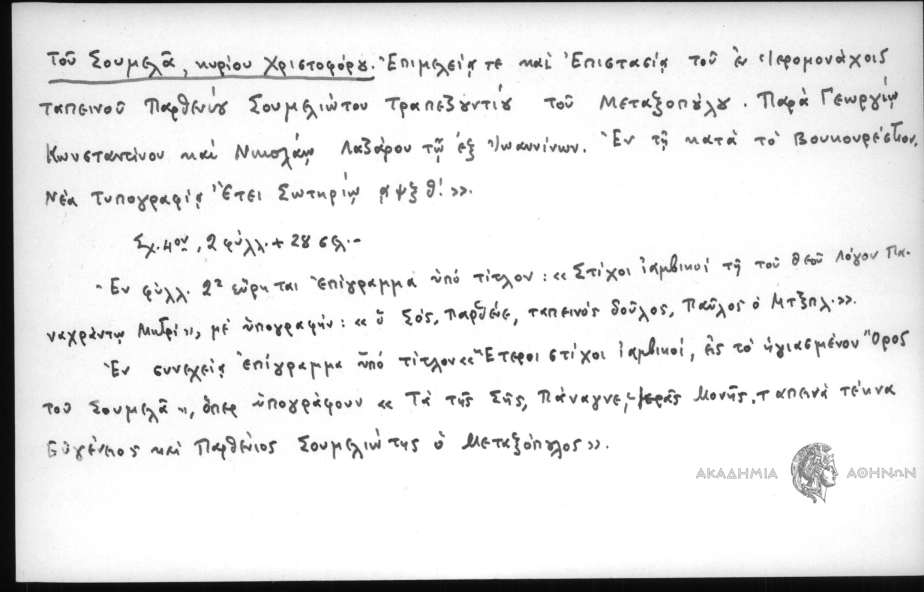 τοῦ Σουμελᾶ, κυρίου Χριστοφόρου. Ἐπιμελείᾳ τε καὶ Ἐπιστασίᾳ τοῦ ἐν Ἱερομονάχοις
ταπεινοῦ Παρθενίου Σουμελιώτου Τραπεζουντίου τοῦ Μεταξοπούλου. Παρὰ Γεωργίῳ
Κωνσταντίνου καὶ Νικολάῳ Λαζάρου τῷ ἐξ Ἰωαννίνων. Ἐν τῇ κατὰ τὸ Βουκουρέστιον.
Νέα Τυπογραφίᾳ Ἔτει Σωτηρίῳ αψξθ'.».
Σχ. 4ον, 2 φύλλ. + 28 σελ.-
Ἐν φύλλ. 2α εὕρηται Ἐπίγραμμα ὑπὸ τίτλον: «Στίχοι ἰαμβικοί τῇ τοῦ Θεοῦ Λόγου Πα-
ναχράντῳ Μητρί», μὲ ὑπογραφήν: «ὁ ξός, Παρθένε, ταπεινός δοῦλος, Παῦλος ὁ Μτξπλ.».
Ἐν συνεχείᾳ Ἐπίγραμμα ὑπὸ τίτλον «Ἕτεροι στίχοι ἰαμβικοί, εἰς τὸ ἡγιασμένον Ὄρος
τοῦ Σουμελᾶ», ὅπερ ὑπογράφουν «Τὰ τῆς Σῆς, Πάναγνε, Ἱερᾶς Μονῆς, ταπεινὰ τέκνα
Εὐγένειος καὶ Παρθένιος Σουμελιώτης ὁ Μεταξόπουλος».
ΑΚΑΔΗΜΙΑ ΑΘΗΝΩΝ